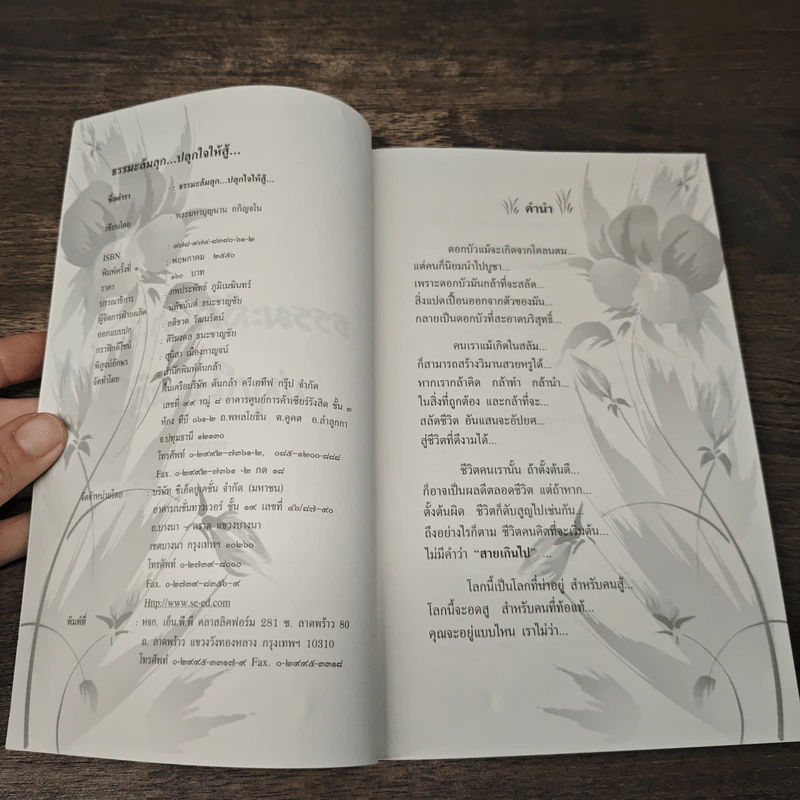 ธรรมะล้มลุก...ปลุกใจให้สู้...
ชื่อตำรา : ธรรมะล้มลุก...ปลุกใจให้สู้...
เขียนโดย : พระมหาบุญนาน อกิญฺจโน
ISBN : ๙๗๘-๙๗๔-๘๓๘๐-๖๑-๒
พิมพ์ครั้งที่ ๑ : พฤษภาคม ๒๕๕๐
ราคา : ๑๖๐ บาท
บรรณาธิการ : ภพประพัทธ์ ภูมิเมฆินทร์
ผู้จัดการฝ่ายผลิต : ธนะชาญชัย
ออกแบบปก : อติชาต วัฒนรัตน์
กราฟิกดีไซน์ : ศิริมงคล ธนะชาญชัย
พิสูจน์อักษร : สุนิสา เมืองกาญจน์
จัดทำโดย : สำนักพิมพ์ต้นกล้า
ในเครือบริษัท ต้นกล้า ครีเอทีฟ กรุ๊ป จำกัด
เลขที่ ๙๙ หมู่ ๘ อาคารศูนย์การค้าเซียร์รังสิต ชั้น ๓
ห้อง ทีบี ๐๖๑-๒ ถ.พหลโยธิน ต.คูคต อ.ลำลูกกา
จ.ปทุมธานี ๑๒๑๓๐
โทรศัพท์ ๐-๒๙๙๒-๗๓๖๑-๒, ๐๘๕-๑๒๐๐-๘๘๘
Fax. ๐-๒๙๙๒-๗๓๖๑ -๒ กด ๑๘
จัดจำหน่ายโดย : บริษัท ซีเอ็ดยูเคชั่น จำกัด (มหาชน)
อาคารเนชั่นทาวเวอร์ ชั้น ๑๙ เลขที่ ๔๖/๘๗-๙๐
ถ.บางนา - ตราด แขวงบางนา
เขตบางนา กรุงเทพฯ ๑๐๒๖๐
โทรศัพท์ ๐-๒๗๓๙-๘๐๐๐
Fax. ๐-๒๗๓๙-๘๓๕๖-๙
Http://www.se-ed.com
พิมพ์ที่ : หจก. เอ็น.พี.พี คลาสลิคฟอร์ม 281 ซ. ลาดพร้าว 80
ถ. ลาดพร้าว แขวงวังทองหลาง กรุงเทพฯ 10310
โทรศัพท์ ๐-๒๙๙๕-๓๓๑๗-๙ Fax. ๐-๒๙๙๕-๓๓๑๘
คำนำ
ดอกบัวแม้จะเกิดจากโคลนตม...
แต่คนก็นิยมนำไปบูชา...
เพราะดอกบัวมันกล้าที่จะสลัด...
สิ่งแปดเปื้อนออกจากตัวของมัน...
กลายเป็นดอกบัวที่สะอาดบริสุทธิ์...
คนเราแม้เกิดในสลัม...
ก็สามารถสร้างวิมานสวยหรูได้...
หากเรากล้าคิด กล้าทำ กล้านำ...
ในสิ่งที่ถูกต้อง และกล้าที่จะ...
สลัดชีวิต อันแสนจะอัปยศ...
สู่ชีวิตที่ดีงามได้...
ชีวิตคนเรานั้น ถ้าตั้งต้นดี...
ก็อาจเป็นผลดีตลอดชีวิต แต่ถ้าหาก...
ตั้งต้นผิด ชีวิตก็ดับสูญไปเช่นกัน...
ถึงอย่างไรก็ตาม ชีวิตคนคิดที่จะเริ่มต้น...
ไม่มีคำว่า “สายเกินไป” ...
โลกนี้เป็นโลกที่น่าอยู่ สำหรับคนสู้...
โลกนี้จะอดสู สำหรับคนที่ท้อแท้...
คุณจะอยู่แบบไหน เราไม่ว่า...